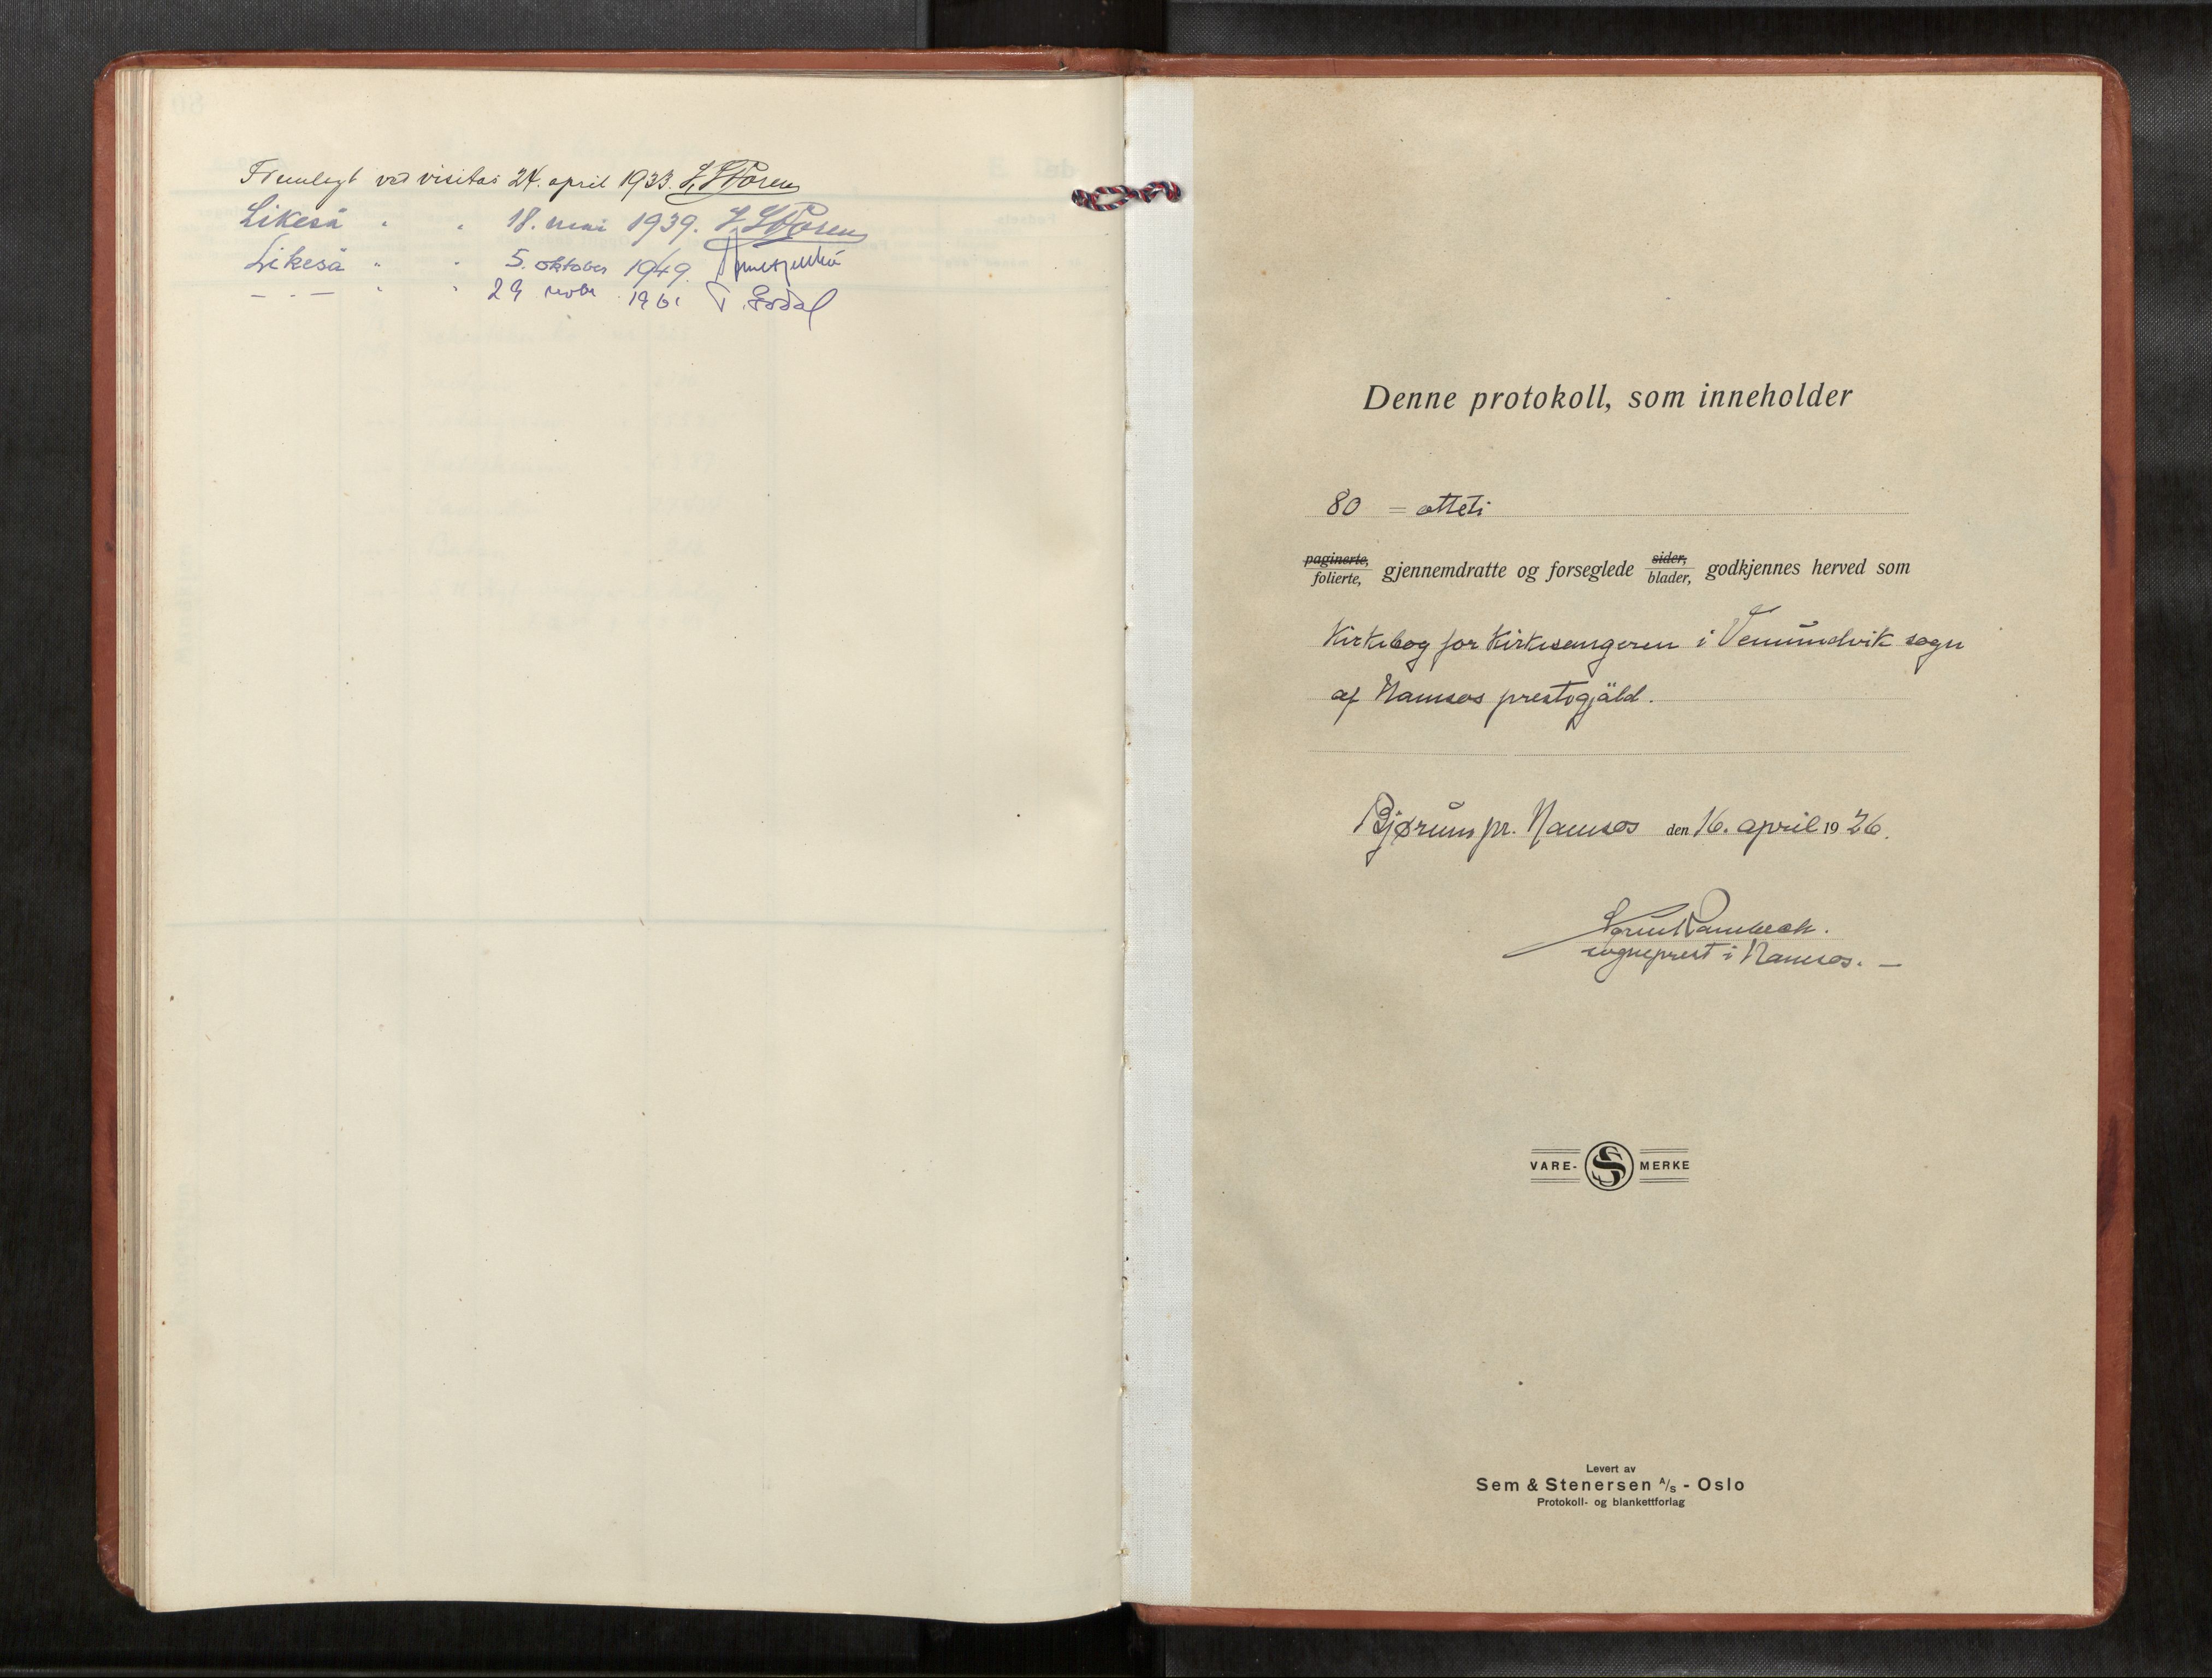 Fremlegt ved visitas 24. april 1933.
Likeså " " 18. mai 1939.
Likeså " " 5. oktober 1949.
— " — " " 29 novbr 1961 T. Godal
Denne protokoll, som inneholder
80 = otteti
paginerte, sider,
folierte, gjennemdratte og forseglede blader, godkjennes herved som
Kirkebog for Kirkesangeren i Vemundvik sogn
af Namsos prestegjäld.
Bjørum pr. Namsos den 16. april 1926.
sogneprest i Namsos. —
VARE- S MERKE
Levert av
Sem & Stenersen A/S - Oslo
Protokoll- og blankettforlag